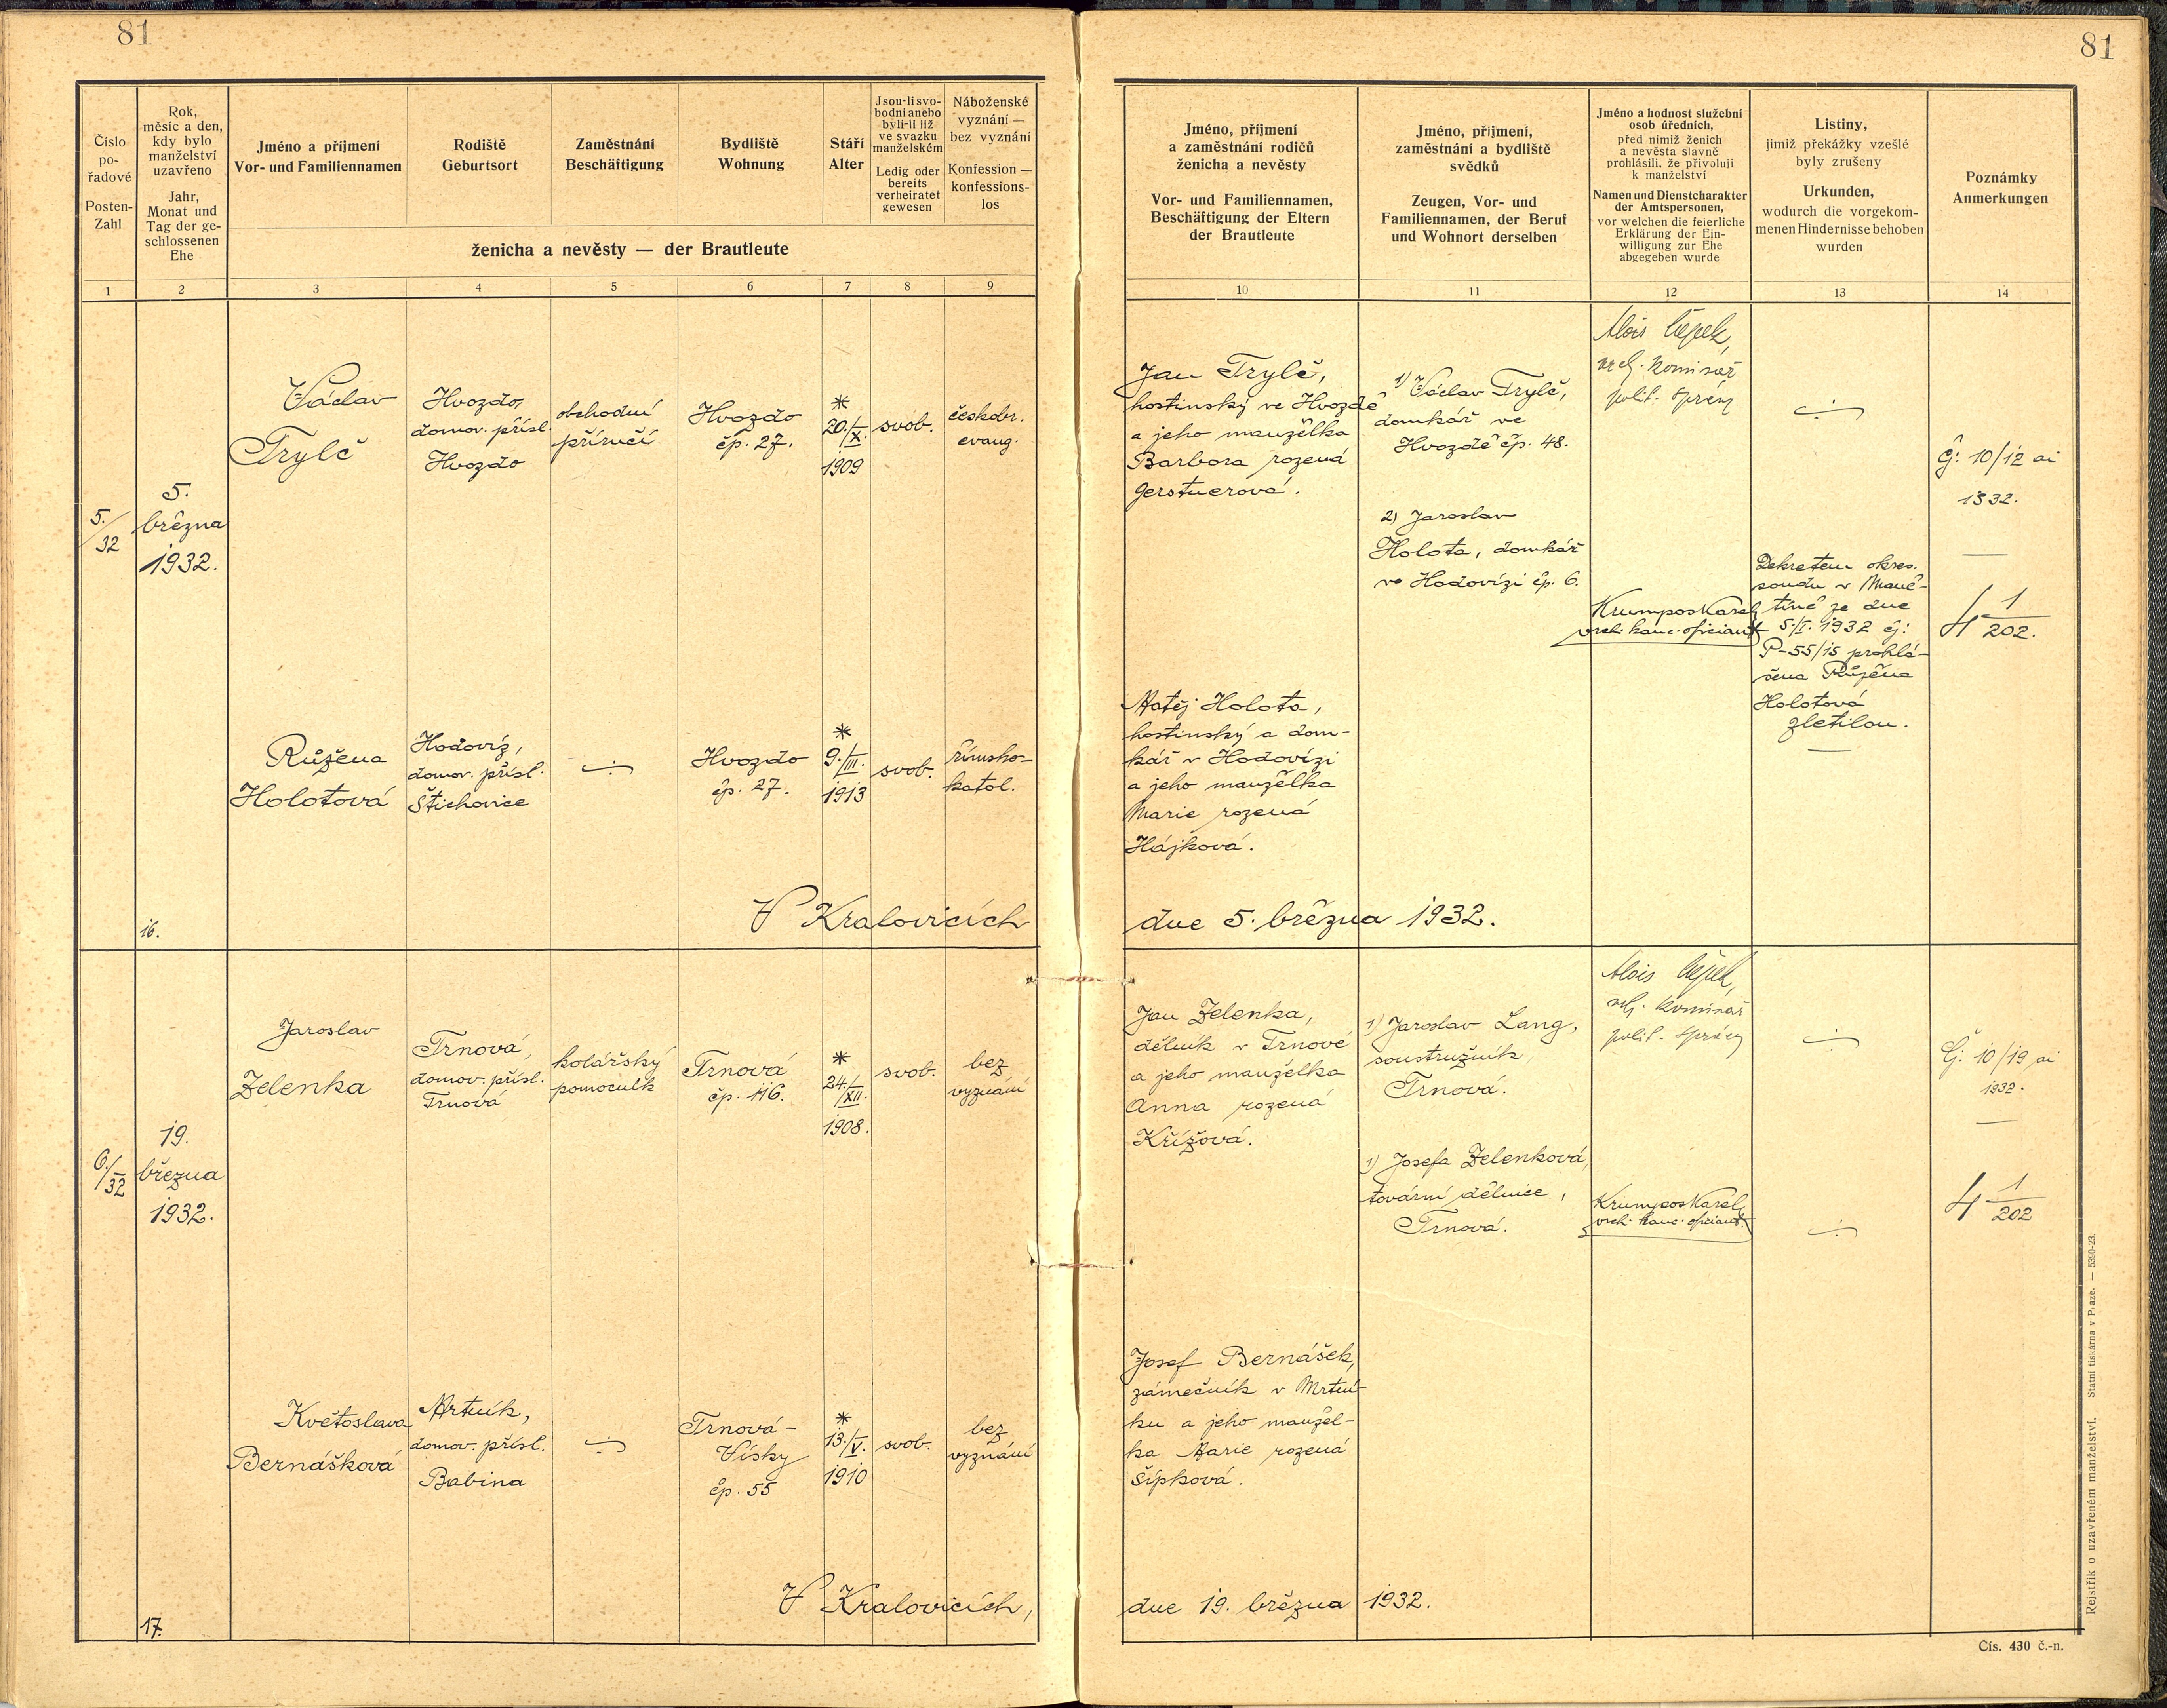 81
81
Číslo
po-
řadové
Posten-
Zahl
Rok,
měsíc a den,
kdy bylo
manželství
uzavřeno
Jahr,
Monat und
Tag der ge-
schlossenen
Ehe
Jméno a příjmení
Vor- und Familiennamen
Rodiště
Geburtsort
Zaměstnání
Beschäftigung
Bydliště
Wohnung
Stáří
Alter
Jsou-li svo-
bodni anebo
byli-li již
ve svazku
manželském
Ledig oder
bereits
verheiratet
gewesen
Náboženské
vyznání —
bez vyznání
Konfession —
konfessions-
los
ženicha a nevěsty — der Brautleute
Jméno, příjmení
a zaměstnání rodičů
ženicha a nevěsty
Vor- und Familiennamen,
Beschäftigung der Eltern
der Brautleute
Jméno, příjmení,
zaměstnání a bydliště
svědků
Zeugen, Vor- und
Familiennamen, der Beruf
und Wohnort derselben
Jméno a hodnost služební
osob úředních,
před nimiž ženich
a nevěsta slavně
prohlásili, že přivolují
k manželství
Namen und Dienstcharakter
der Amtspersonen,
vor welchen die feierliche
Erklärung der Ein-
willigung zur Ehe
abgegeben wurde
Listiny,
jimiž překážky vzešlé
byly zrušeny
Urkunden,
wodurch die vorgekom-
menen Hindernisse behoben
wurden
Poznámky
Anmerkungen
1 2 3 4 5 6 7 8 9
10 11 12 13 14
5./32
5.
března
1932.
Václav
Trylč
Hvozdo,
domov. přísl.
Hvozdo
obchodní
příručí
Hvozdo
čp. 27.
*
20./X.
1909
svob.
českobr.
evang.
Jan Trylč,
hostinský ve Hvozdě
a jeho manželka
Barbora rozená
Gerstnerová.
1) Václav Trylč,
domkář ve
Hvozdě čp. 48.
2) Jaroslav
Holota, domkář
ve Hodovízi čp. 6.
Alois Čepek,
vrch. komisař
polit. správy
Krumpos Karel
vrch. kanc. oficiant
Dekretem okres.
soudu v Maně-
tíně ze dne
5/I. 1932 čj:
P-55/15 prohlá-
šena Růžena
Holotová
zletilou.
Čj: 10/12 ai
1932.
4 1/202.
Růžena
Holotová
Hodovíz,
domov. přísl.
Štichovice
Hvozdo
čp. 27.
*
9./III.
1913
svob.
římsko-
katol.
Matěj Holota,
hostinský a dom-
kář v Hodovízi
a jeho manželka
Marie rozená
Hájková.
16.
V Kralovicích
dne 5. března 1932.
6./32
19.
března
1932.
Jaroslav
Zelenka
Trnová,
domov. přísl.
Trnová
kolářský
pomocník
Trnová
čp. 116.
*
24./XII.
1908.
svob.
bez
vyznání
Jan Zelenka,
dělník v Trnové
a jeho manželka
Anna rozená
Křížová.
1) Jaroslav Lang,
soustružník,
Trnová.
1) Josefa Zelenková,
tovární dělnice,
Trnová.
Alois Čepek,
vrch. komisař
polit. správy
Krumpos Karel,
vrch. kanc. oficiant.
Čj: 10/19 ai
1932.
4 1/202
Květoslava
Bernášková
Mrtník,
domov. přísl.
Babina
Trnová-
Vísky
čp. 55
*
13./V.
1910
svob.
bez
vyznání
Josef Bernášek,
zámečník v Mrtní-
ku a jeho manžel-
ka Marie rozená
Šípková.
17.
V Kralovicích,
dne 19. března 1932.
Rejstřík o uzavřeném manželství. Statní tiskárna v Praze. — 5390-23.
Čís. 430 č.-n.